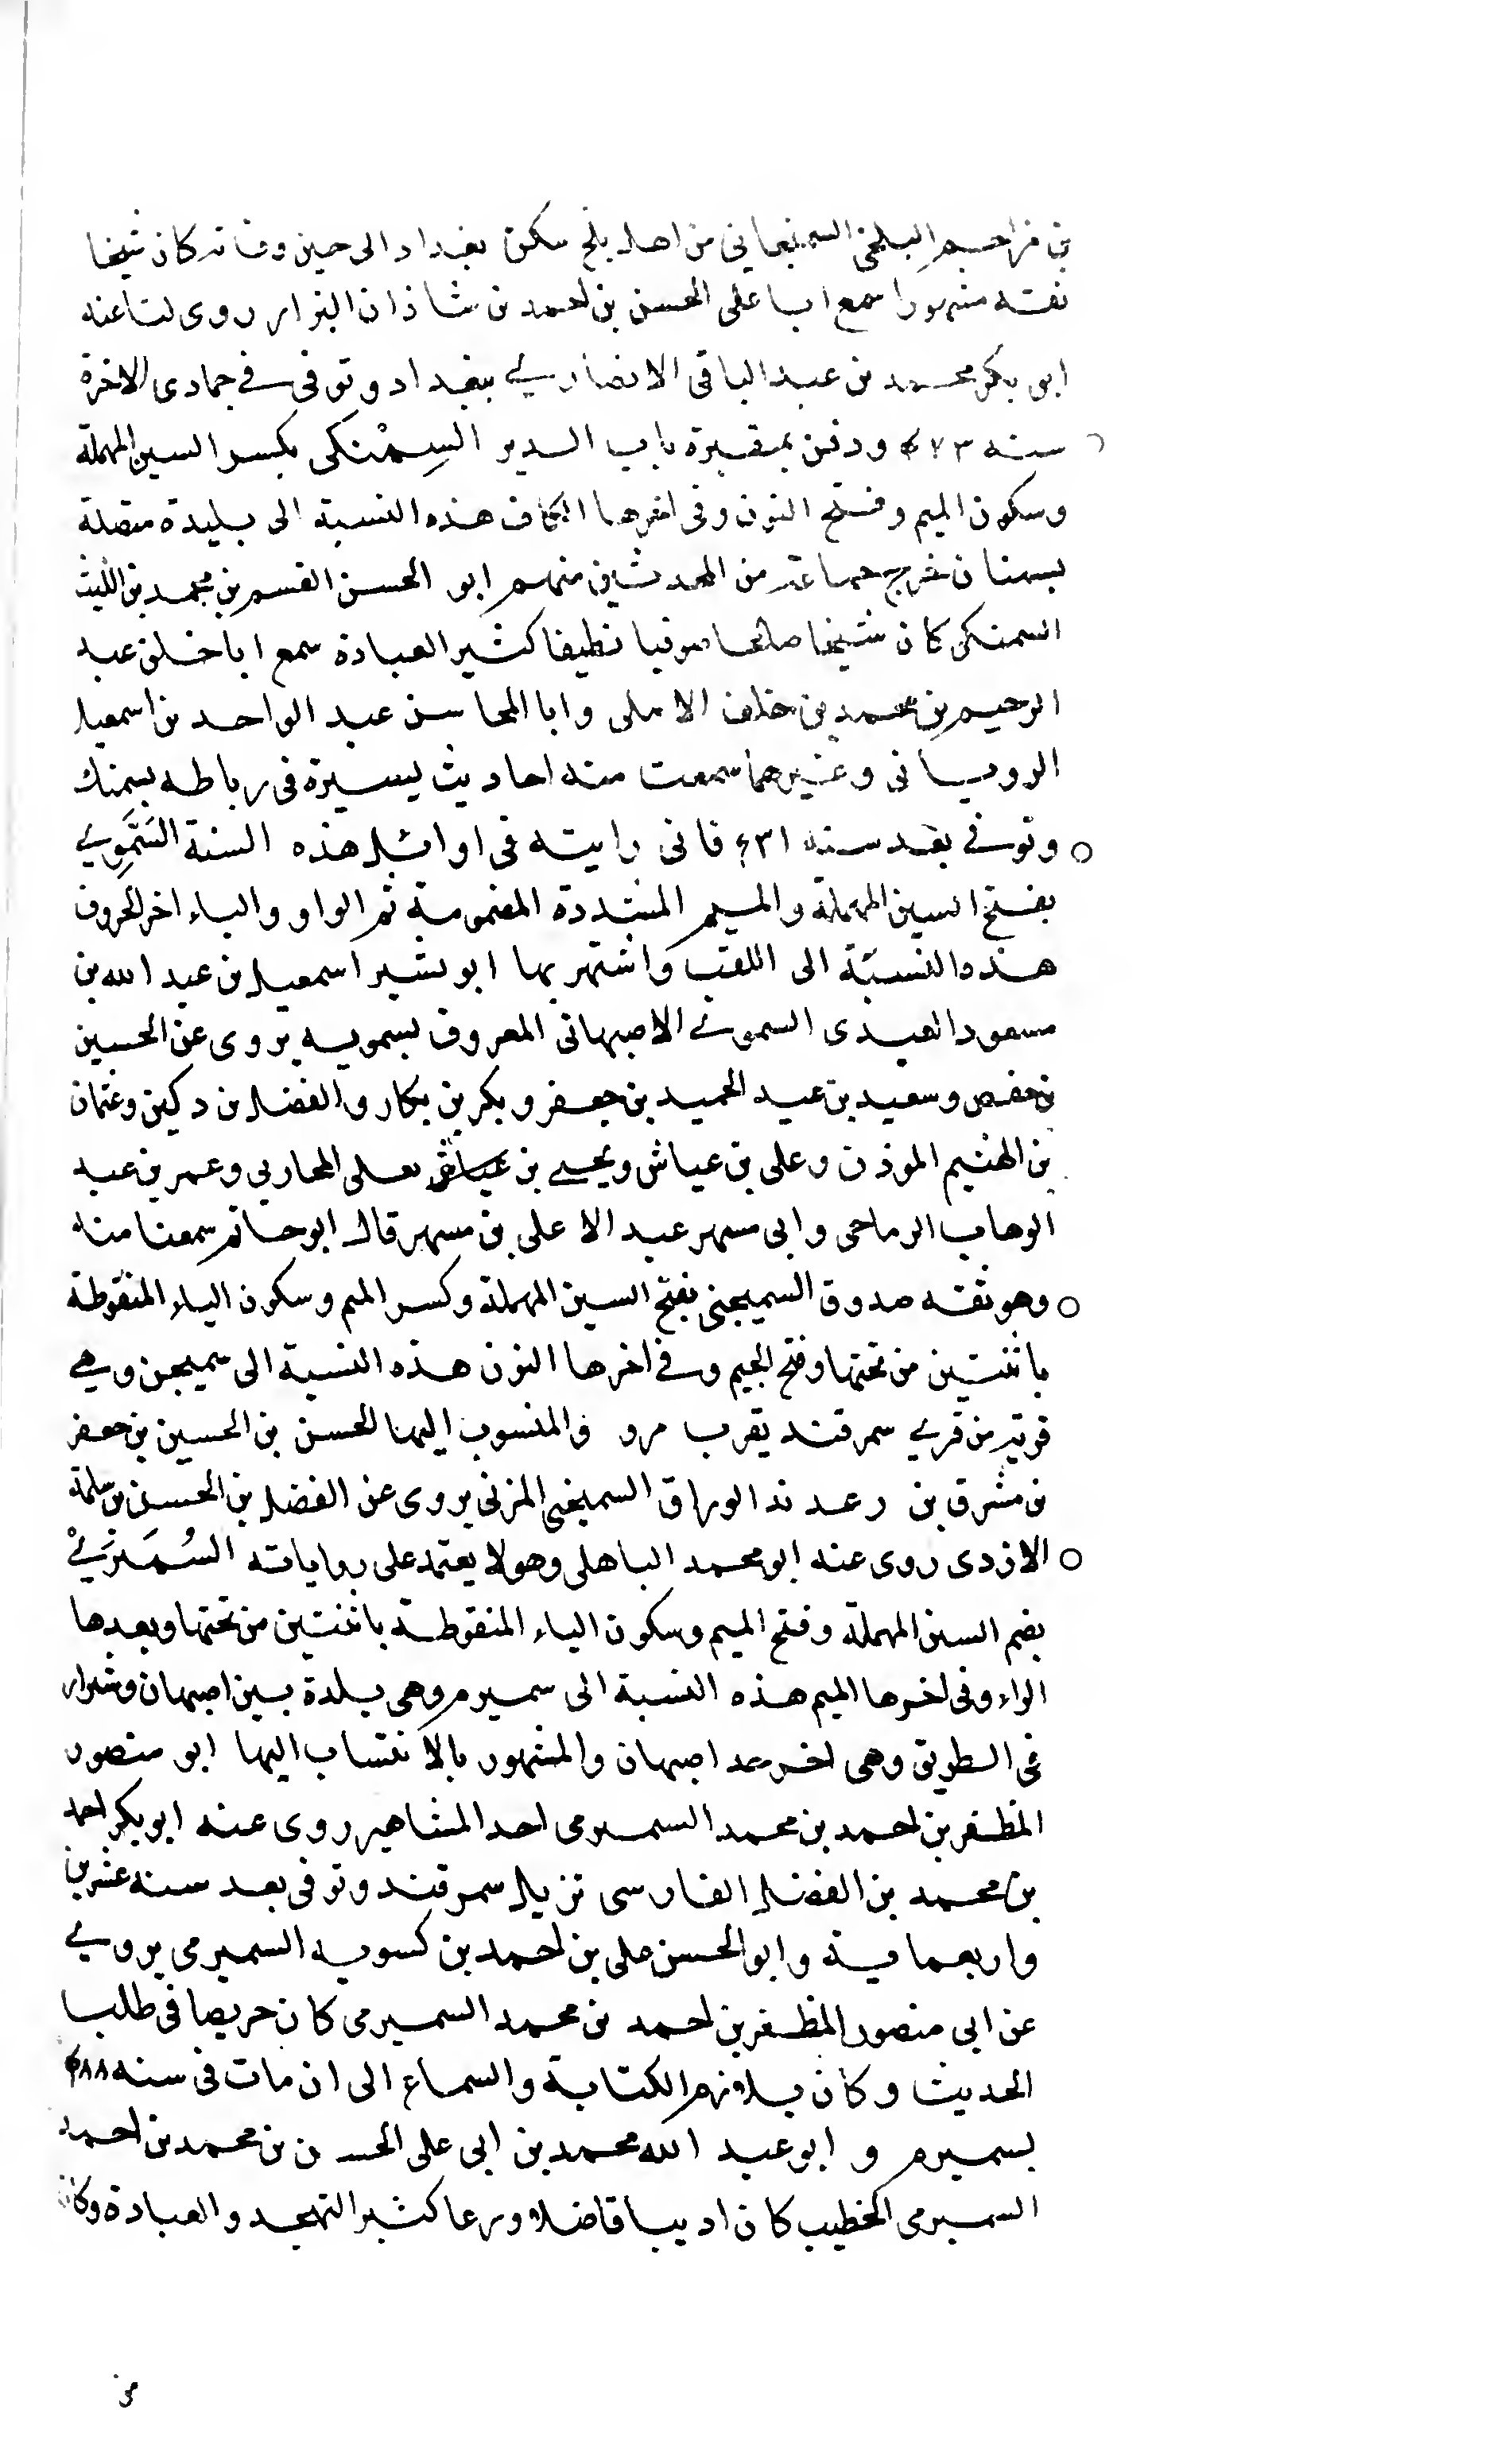 بن مزاحم البلخي السمنجاني من اهل بلخ سكن بغداد الى حين وفاته كان شيخا
ثقة مشهورا سمع ابا على الحسن بن احمد بن شاذان البزار روى لنا عنه
ابو بكر محمد بن عبد الباقى الانصاري ببغداد وتوفى في جمادى الاخرة
سنه ۴۷۳ ودفن بمقبرة باب الدير السِمْنَكى بكسر السين المهملة
وسكون الميم وفتح النون وفى اخرها الكاف هذه النسبة الى بليدة متصلة
بسمنان خرج جماعة من المحدثين منهم ابو الحسن القسم بن محمد بن الليث
السمنكى كان شيخا صالحا صوفيا نظيفا كثير العبادة سمع ابا خلف عبد
الرحيم بن محمد بن خلف الاملى وابا المحاسن عبد الواحد بن اسمعيل
الرويانى وغيرهما سمعت منه احاديث يسيرة فى رباطه بسمنك
وتوفي بعد سنه ۵۳۱ فانى رايته فى اوائل هذه السنة السَمُّويي
بفتح السين المهملة والميم المشددة المضمومة ثم الواو والياء اخر الحروف
هذه النسبة الى اللقب واشتهر بها ابو بشير اسمعيل بن عبد الله بن
مسعود العبدى السموئي الاصبهانى المعروف بسمويه يروى عن الحسين
بن حفص وسعيد بن عبد الحميد بن جعفر وبكر بن بكار والفضل بن دكين وعثمان
بن الهيثم الموذن وعلى بن عياش ويحيى بن يعلى المحاربى وعمر بن عبد
الوهاب الرماحى وابى مسهر عبد الاعلى بن مسهر قال ابو حاتم سمعنا منه
وهو ثقه صدوق السميجنى بفتح السين المهملة وكسر الميم وسكون الياء المنقوطة
باثنتين من تحتها وفتح الجيم وفي اخرها النون هذه النسبة الى سميجن وهي
قرية من قرى سمرقند بقرب مرو والمنسوب اليها الحسن بن الحسين بن جعفر
بن مشرق بن الوراق السميجنى المزنى يروى عن الفضل بن الحسين بن سلمة
الازدى روى عنه ابو محمد الباهلى وهو لا يعتمد على رواياته السُمَيْرَميْ
بضم السين المهملة وفتح الميم وسكون الياء المنقوطة باثنتين من تحتها وبعدها
الراء وفى اخرها الميم هذه النسبة الى سميرم وهى بلدة بين اصبهان وشيراز
فى الطريق وهى اخر حد اصبهان والمشهور بالانتساب اليها ابو منصور
المظفر بن احمد بن محمد السميرمى احد المشاهير روى عنه ابو بكر احمد
بن محمد بن الفضل الفارسى نزيل سمرقند وتوفى بعد سنه عشرين
واربعماية وابو الحسن على بن احمد بن كسويه السميرمى يروي
عن ابى منصور المظفر بن احمد بن محمد السميرمى كان حريصا فى طلب
الحديث وكان يلازم الكتابة والسماع الى ان مات فى سنه ۴۸۸
بسميرم و ابو عبد الله محمد بن ابى على الحسن بن محمد بن احمد
السميرمى الخطيب كان اديبا فاضلا ورعا كثير التهجد والعبادة وكان